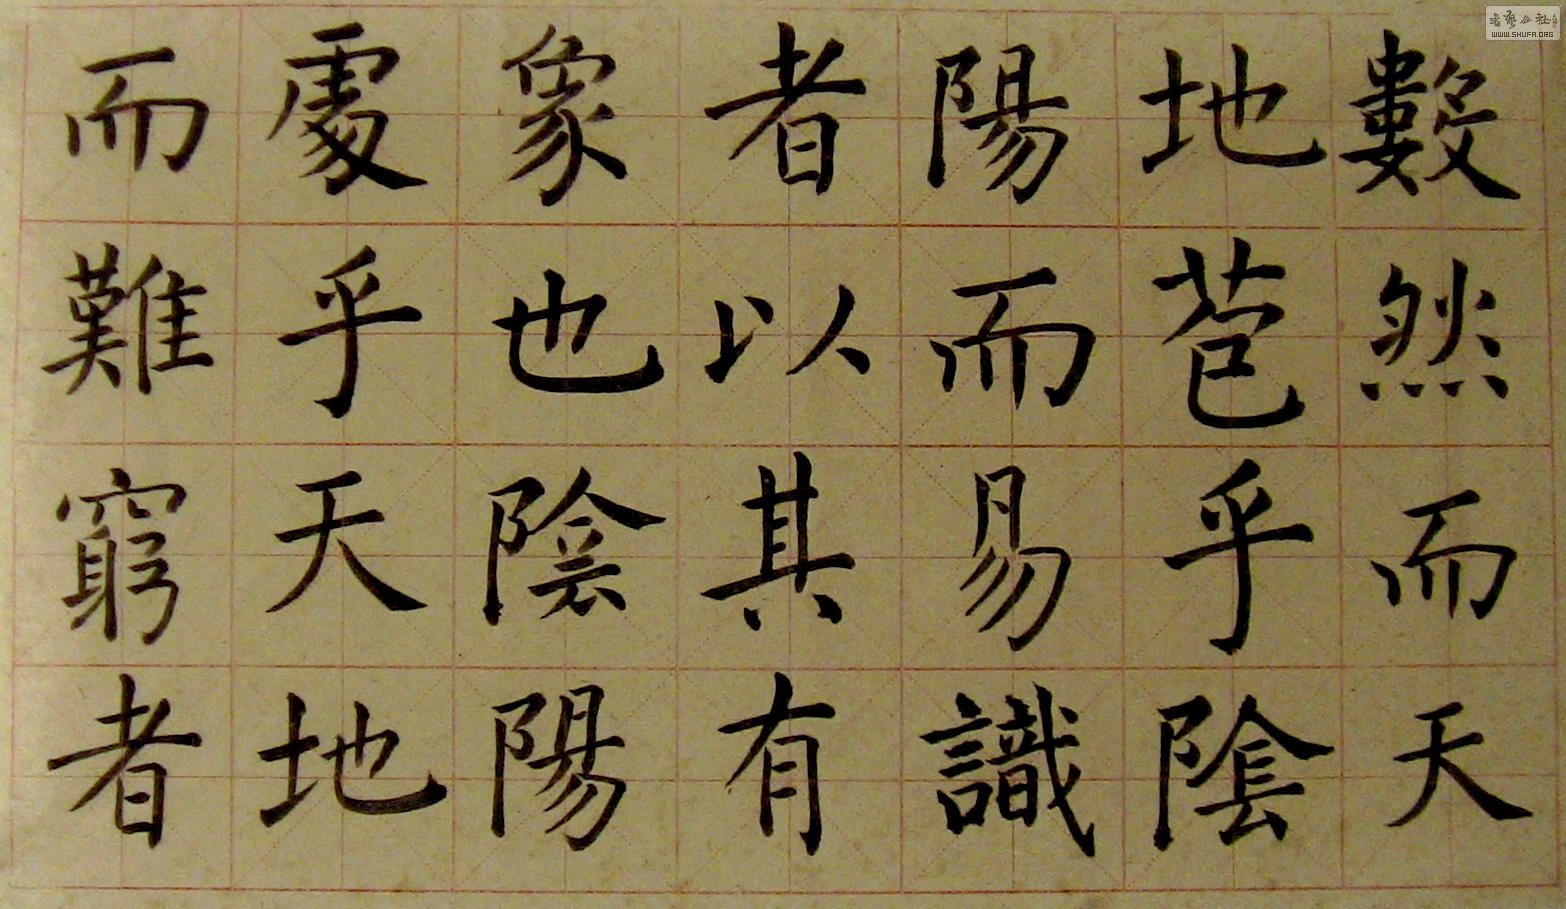 數然而天
地苞乎陰
陽而易識
者以其有
象也陰陽
處乎天地
而難窮者
WWW.SHUFA.ORG